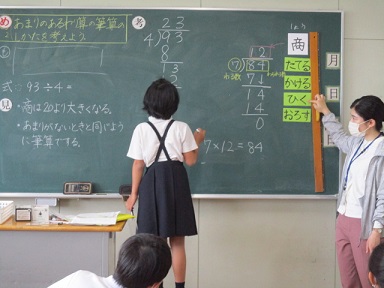 め あまりのあるわり算の筆算の
しかたを考えよう
式 93÷4=
見
・商は20より大きくなる。
・あまりがないときと同じよう
に筆算でする。
考
23
4)93
8
13
12
7)84
7
14
14
0
わる数
7×12=84
商
たてる
かける
ひく
おろす
月
日